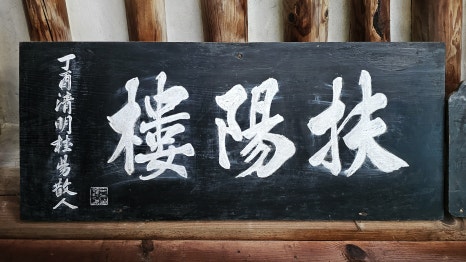 扶陽樓
丁酉清明桂陽散人